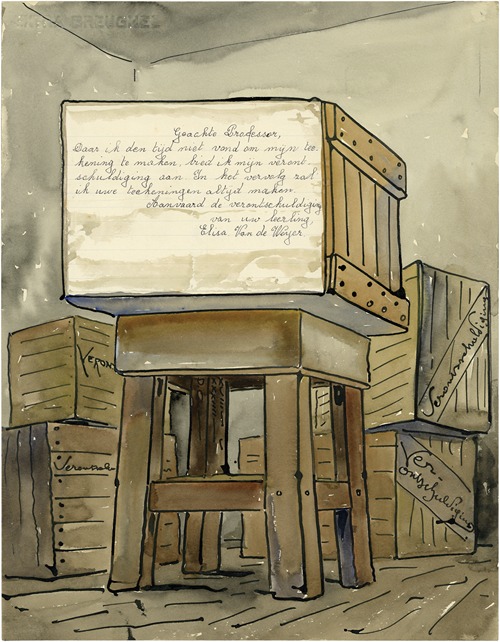 EXTRA BREUGHEL
Geachte Professor,
Daar ik den tijd niet vond om mijn tee-
kening te maken, bied ik mijn veront-
schuldiging aan. In het vervolg zal
ik uwe teekeningen altijd maken.
Aanvaard de verontschuldiging
van uw leerling.
Elisa Van de Weyer.
VERON
Verontsch
Verontschuldiging
Ver-
ontschuldiging